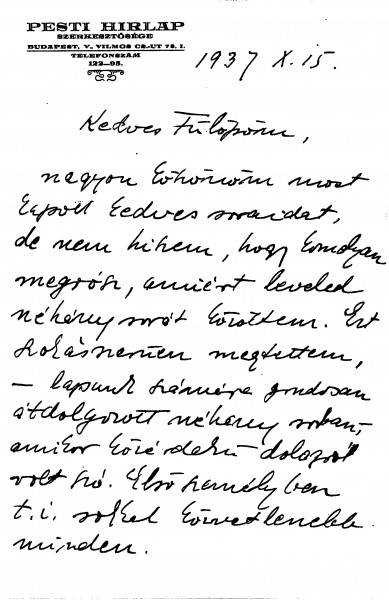 PESTI HIRLAP
SZERKESZTŐSÉGE
BUDAPEST, V., VILMOS CS.-UT 78. I.
TELEFONSZÁM
122—95.
1937 X. 15.
Kedves Fülöpöm,
nagyon köszönöm most
kapott kedves soraidat,
de nem hiszem, hogy komolyan
megrósz, amiért leveled
néhány sorát közöltem. Ezt
szokásszerűen megtettem,
– lapunk számára gondosan
átdolgozott néhány sorban,
amikor közérdekű dologról
volt szó. Első személyben
t.i. sokkal közvetlenebb
minden.